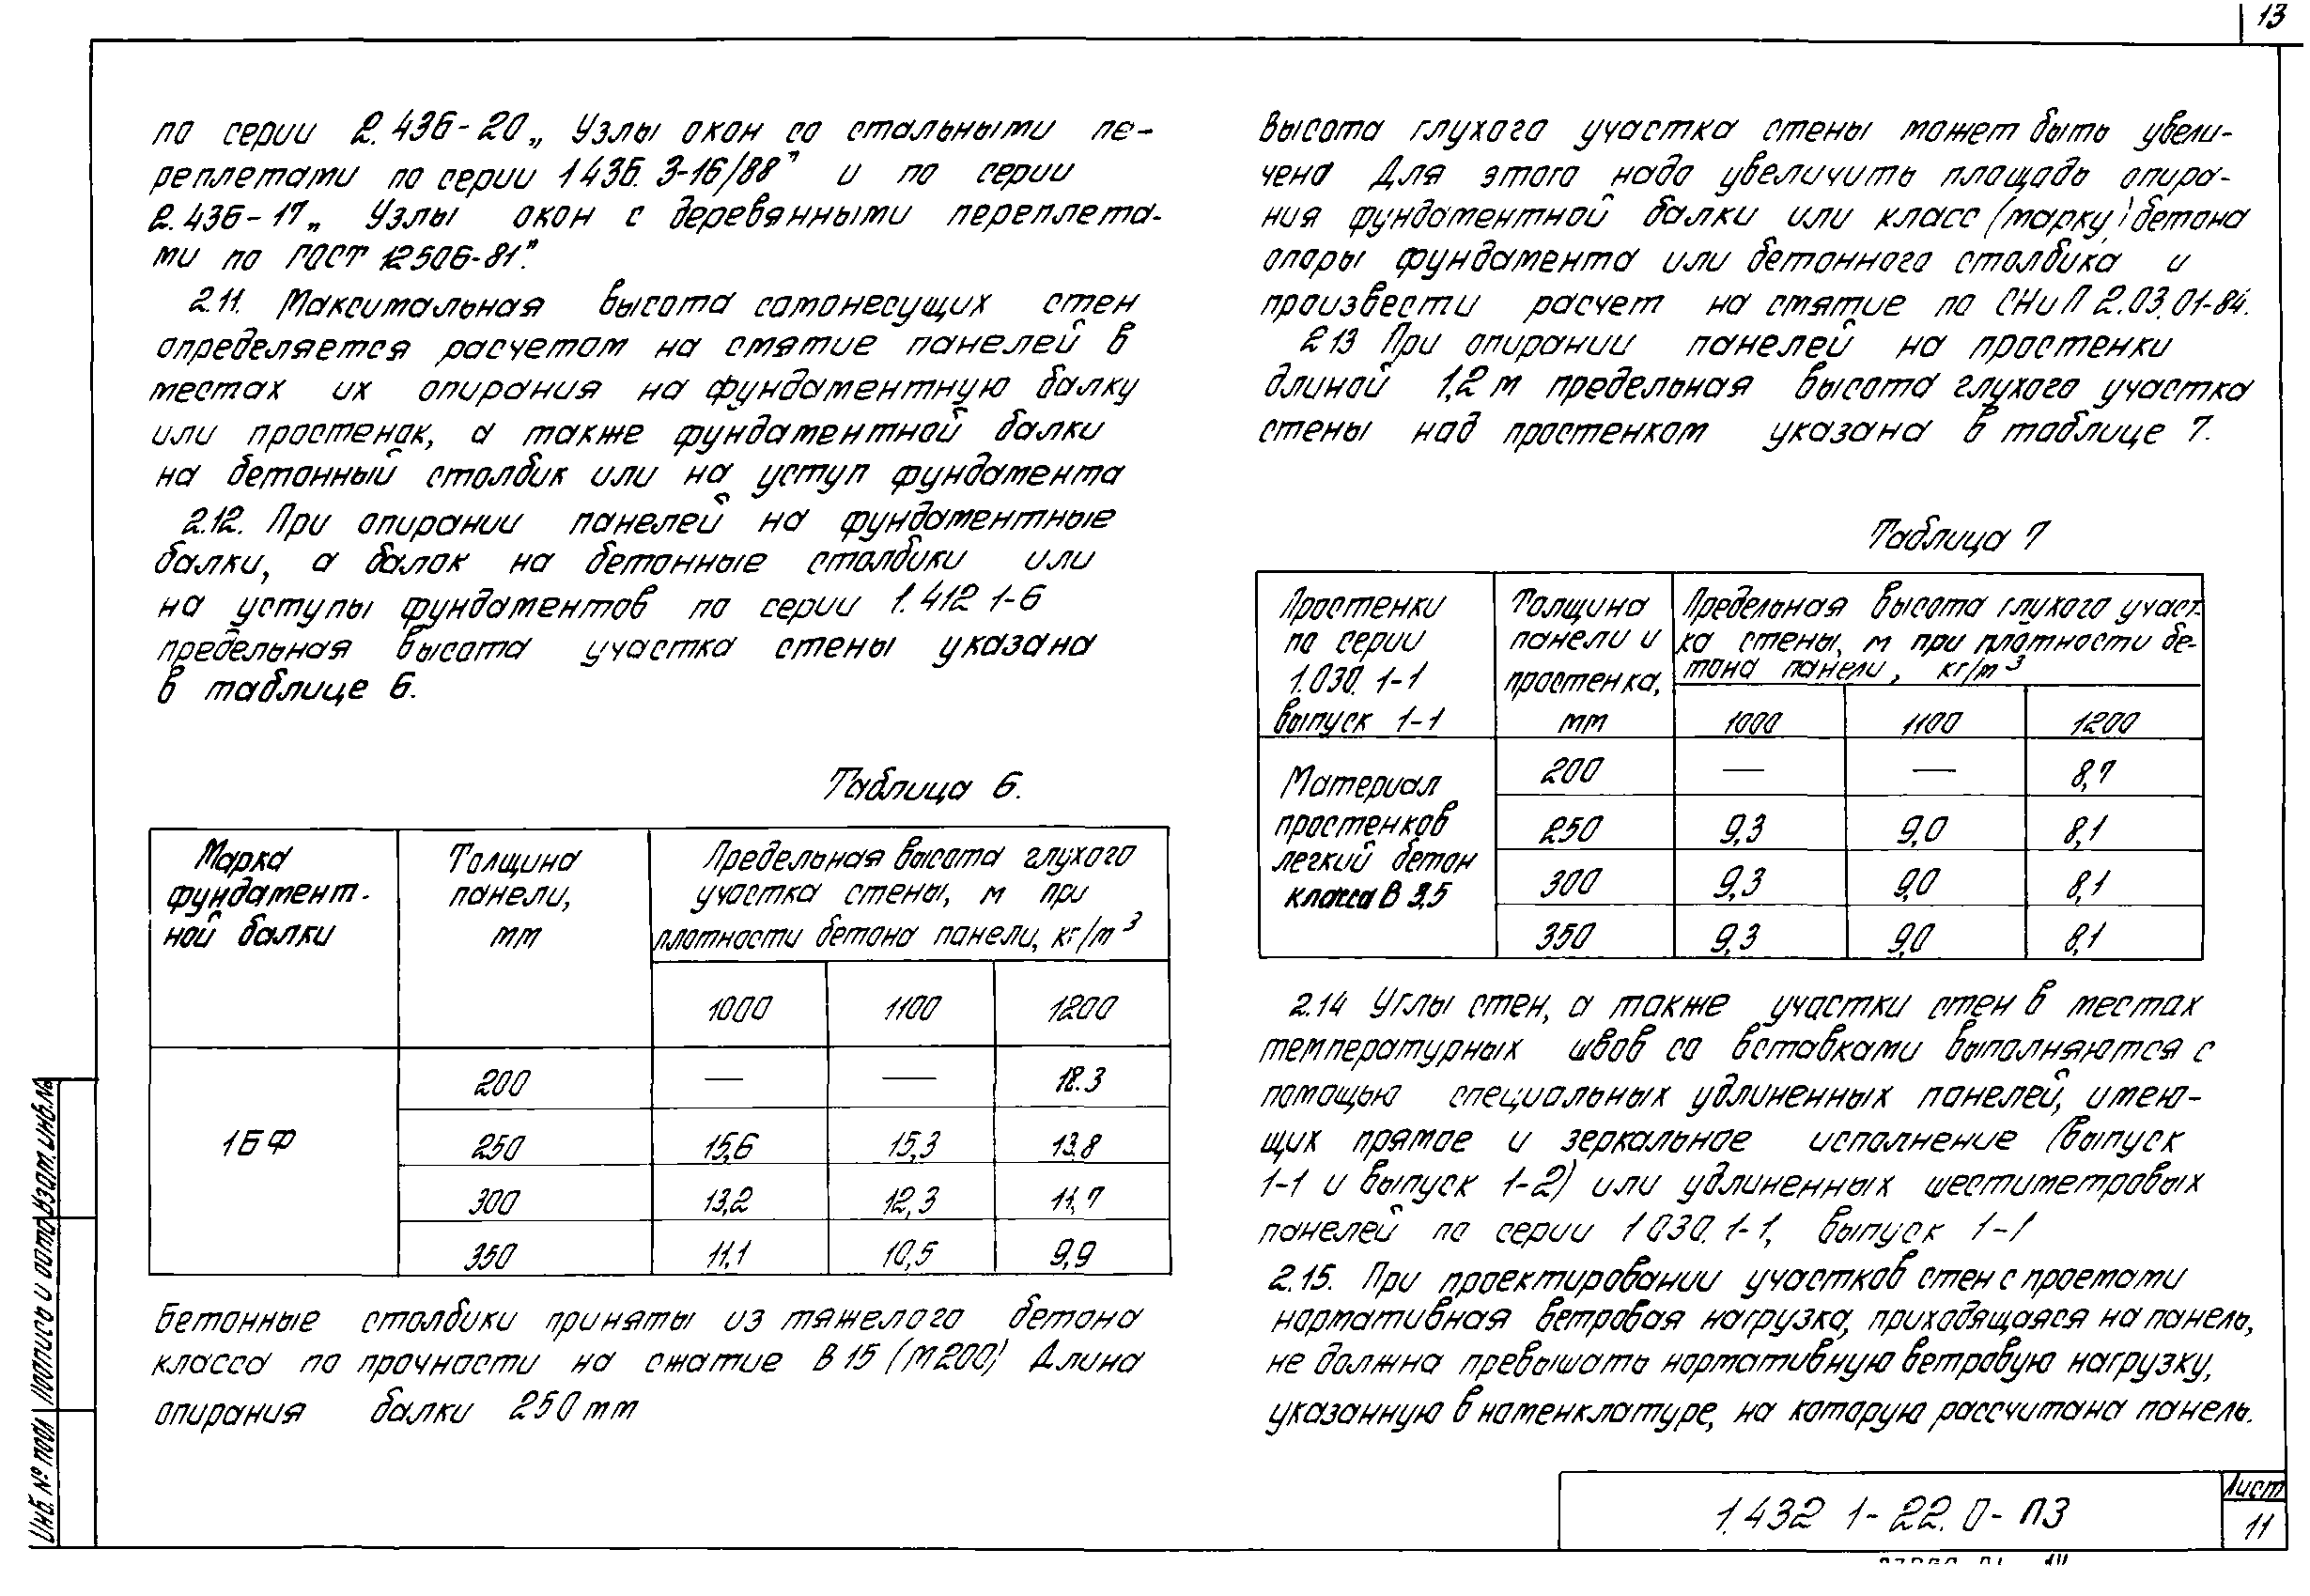 13
по серии 2.436-20 „ Узлы окон со стальными пе-
реплетами по серии 1 436. 3-16/88" и по серии
2.436-17 „ Узлы окон с деревянными переплета-
ми по ГОСТ 12506-81".
2.11. Максимальная высота самонесущих стен
определяется расчетом на смятие панелей в
местах их опирания на фундаментную балку
или простенок, а также фундаментной балки
на бетонный столбик или на уступ фундамента
2.12. При опирании панелей на фундаментные
балки, а балок на бетонные столбики или
на уступы фундаментов по серии 1.412 1-6
предельная высота участка стены указана
в таблице 6.
Таблица 6.
Марка фундамент- ной балки | Толщина панели, мм | Предельная высота глухого участка стены, м при плотности бетона панели, кг/м³
1000 | 1100 | 1200
1БФ | 200 | — | — | 18.3
250 | 15,6 | 15,3 | 13,8
300 | 13,2 | 12,3 | 11,7
350 | 11,1 | 10,5 | 9,9
Бетонные столбики приняты из тяжелого бетона
класса по прочности на сжатие В 15 (М200) Длина
опирания балки 250 мм
высота глухого участка стены может быть увели-
чена Для этого надо увеличить площадь опира-
ния фундаментной балки или класс (марку) бетона
опоры фундамента или бетонного столбика и
произвести расчет на смятие по СНиП 2.03.01-84.
2 13 При опирании панелей на простенки
длиной 1,2 м предельная высота глухого участка
стены над простенком указана в таблице 7.
Таблица 7
Простенки по серии 1.030. 1-1 выпуск 1-1 | Толщина панели и простенка, мм | Предельная высота глухого участ- ка стены, м при плотности бе- тона панели, кг/м³
1000 | 1100 | 1200
Материал простенков легкий бетон класса В 3,5 | 200 | — | — | 8,7
250 | 9,3 | 9,0 | 8,1
300 | 9,3 | 9,0 | 8,1
350 | 9,3 | 9,0 | 8,1
2.14 Углы стен, а также участки стен в местах
температурных швов со вставками выполняются с
помощью специальных удлиненных панелей, имею-
щих прямое и зеркальное исполнение (выпуск
1-1 и выпуск 1-2) или удлиненных шестиметровых
панелей по серии 1 030. 1-1, выпуск 1-1
2.15. При проектировании участков стен с проемами
нормативная ветровая нагрузка, приходящаяся на панель,
не должна превышать нормативную ветровую нагрузку,
указанную в номенклатуре, на которую рассчитана панель.
Инв. № подл
Подпись и дата
Взам. инв. №
1.432 1-22. 0-ПЗ
Лист
11